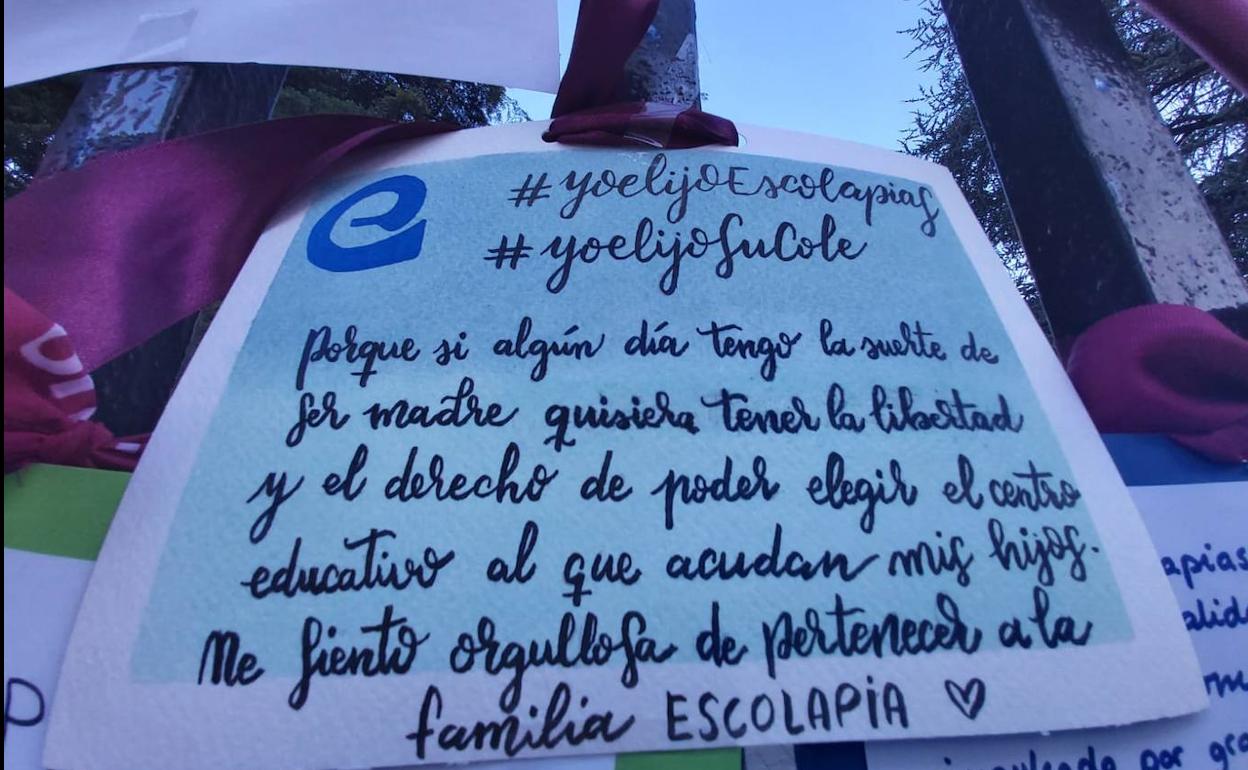 e
#yoelijoEscolapias
#yoelijoSuCole
Porque si algún día tengo la suerte de
ser madre quisiera tener la libertad
y el derecho de poder elegir el centro
educativo al que acudan mis hijos.
Me siento orgullosa de pertenecer a la
familia ESCOLAPIA ♡
apias
alid
por gra